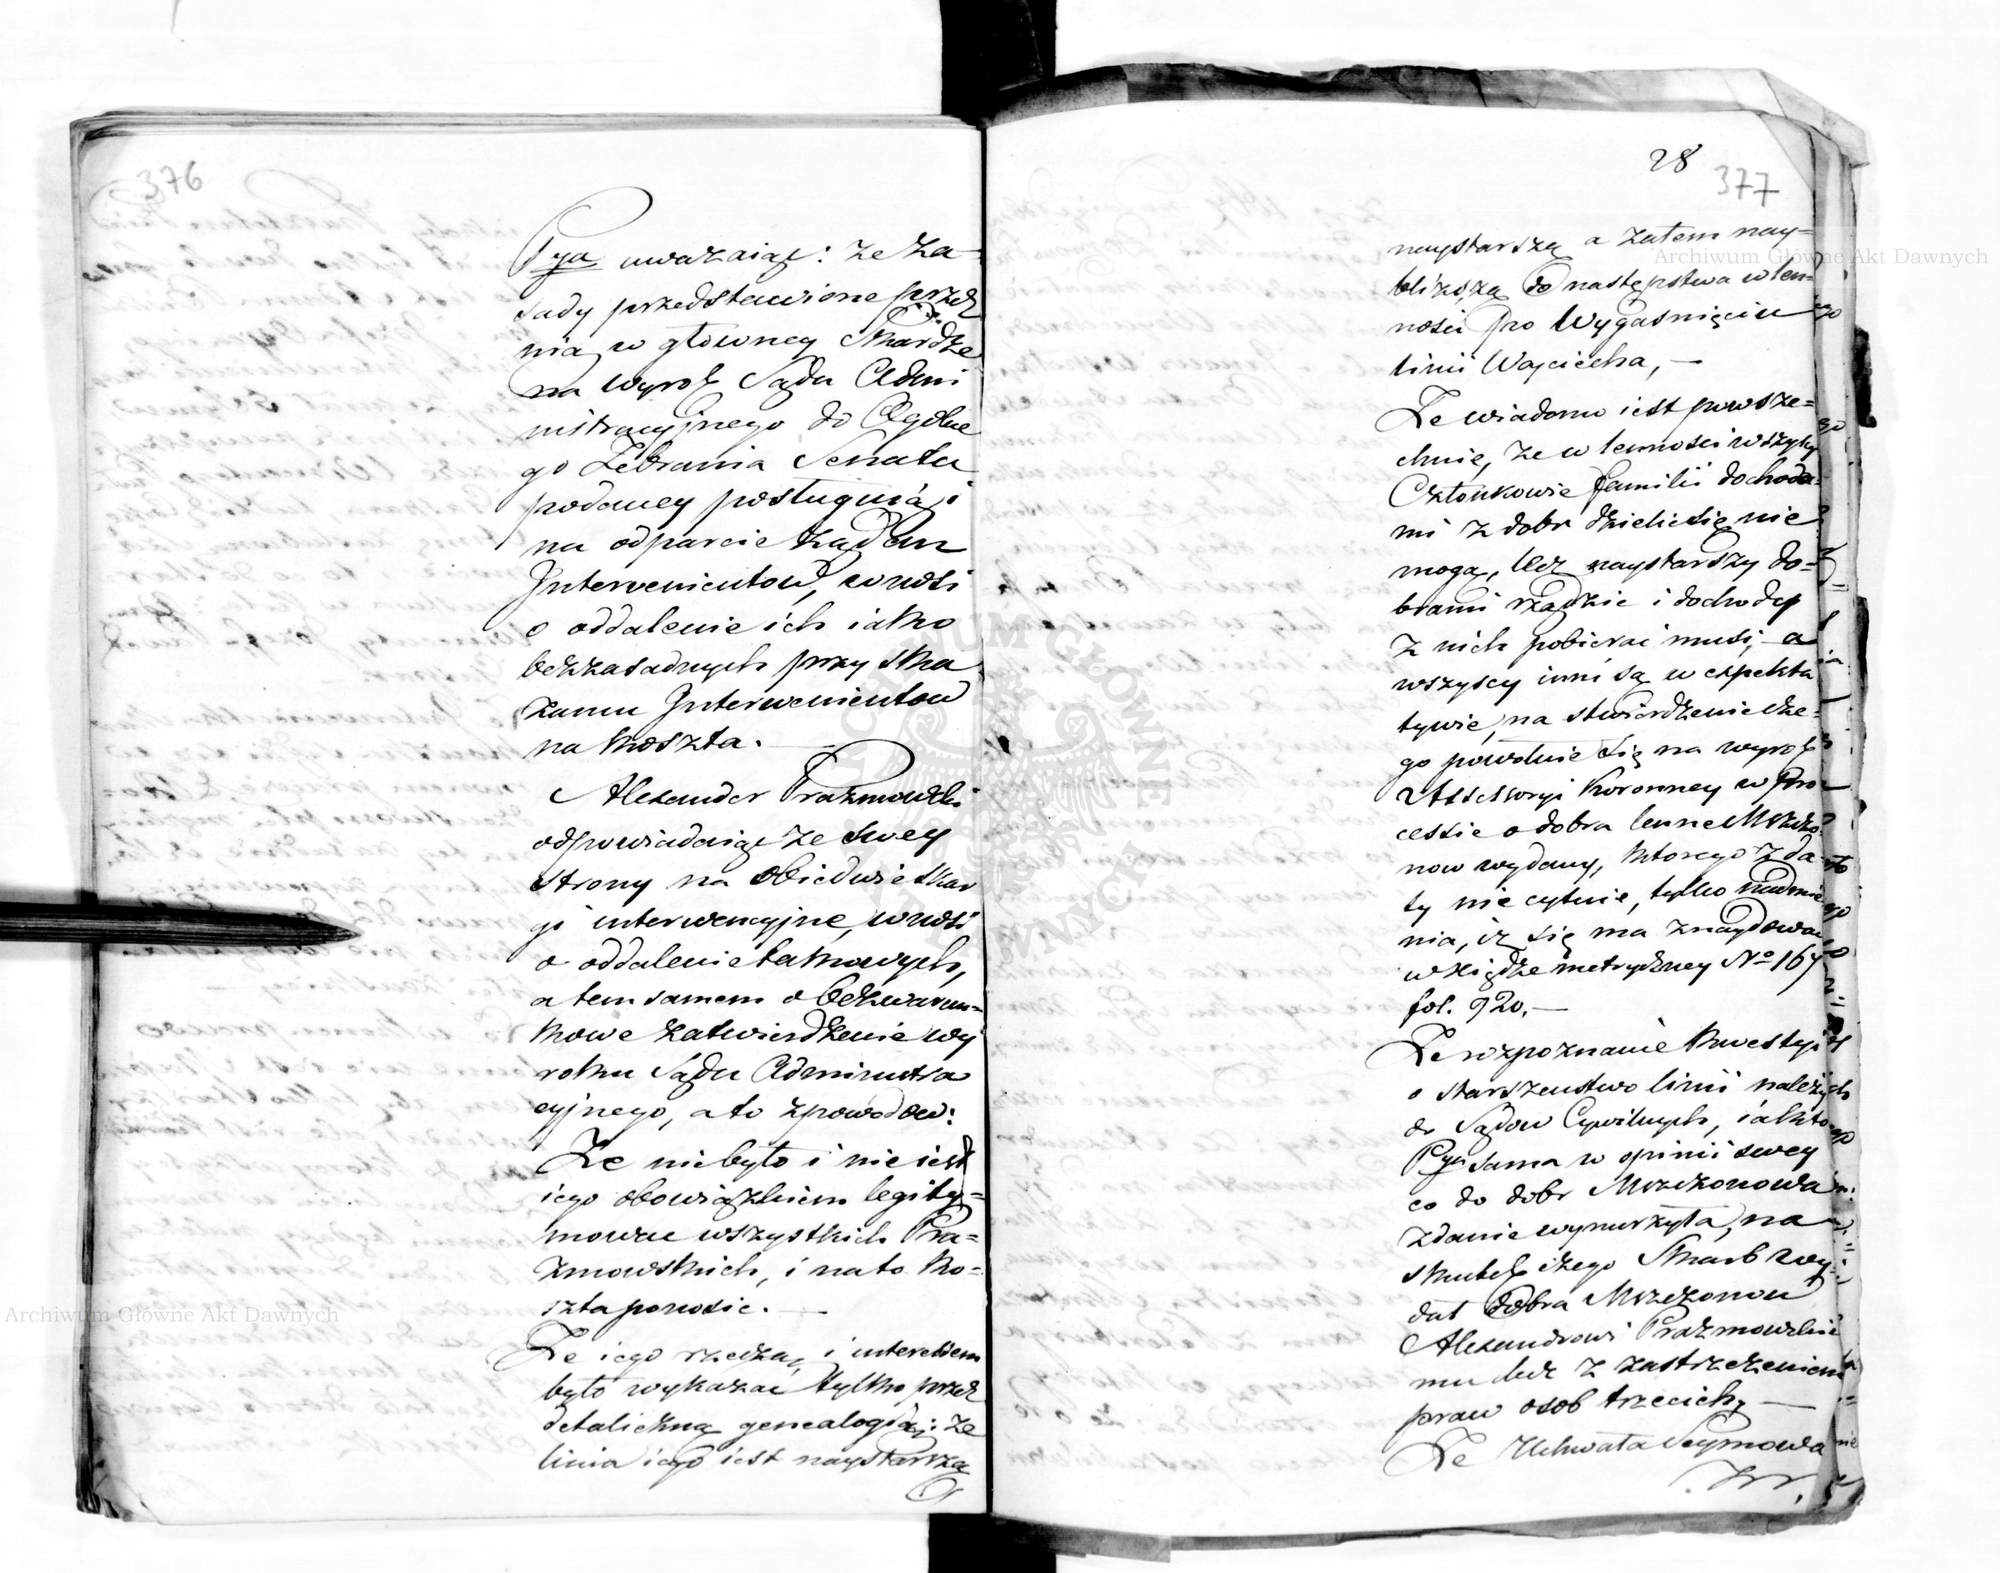 376
Pya uważaiąc: że za-
sady przedstawione przez
nią w głowney Skardze
na wyrok Sądu Admi
nistracyjnego do Ogolne
go Zebrania Senatu
podaney posługuią i
na odparcie żądań
Interwenientow, wnosi
o oddalenie ich iako
bezzasadnych przy ska
zaniu Interwenientow
na koszta. —
Alexander Prażmowski
odpowiadaiąc ze swey
strony na obiedwie skar
gi interwencyjne, wnosi
o oddalenie takowych,
a tem samem o bezwarun=
kowe zatwierdzenie wy
roku Sądu Administra
cyjnego, a to z powodow:
Że niebyło i nie iest
iego obowiązkiem legity=
mować wszystkich Pra=
żmowskich, i na to ko=
szta ponosić. —
Że iego rzeczą, i interessem
było wykazać tylko przez
detaliczną genealogią: że
linia iego iest naystarszą
28
377
naystarszą a zatem nay=
bliższą do następstwa w len=
ności po wygaśnięciu
linii Wojciecha, —
Że wiadomo iest powsze=
chnie, że w lenności wszyscy
Członkowie familii dochoda-
mi z dobr dzielić się nie
mogą, lecz naystarszy do=
brami rządzić i dochody
z nich pobierać musi, a
wszyscy inni są w expekta
tywie, na stwierdzenie cze=
go powołuie się na wyrok
Assessoryi Koronney w pro
cessie o dobra lenne Mszczo
now wydany, ktorego z da
ty nie cytuie, tylko nadmie
nia, iż się ma znaydować
w xiędze metryczney No 167
fol. 920. —
Że rozpoznanie kwestyi
o starszeństwo linii należy
do Sądow Cywilnych, iak to
Pya sama w opinii swey
co do dobr Mszczonowa
zdanie wynurzyła, na
skutek czego Skarb wy=
dał dobra Mszczonow
Alexandrowi Prażmowskie
mu lecz z zastrzeżeniem
praw osob trzecich, —
Że Uchwała Seymowa